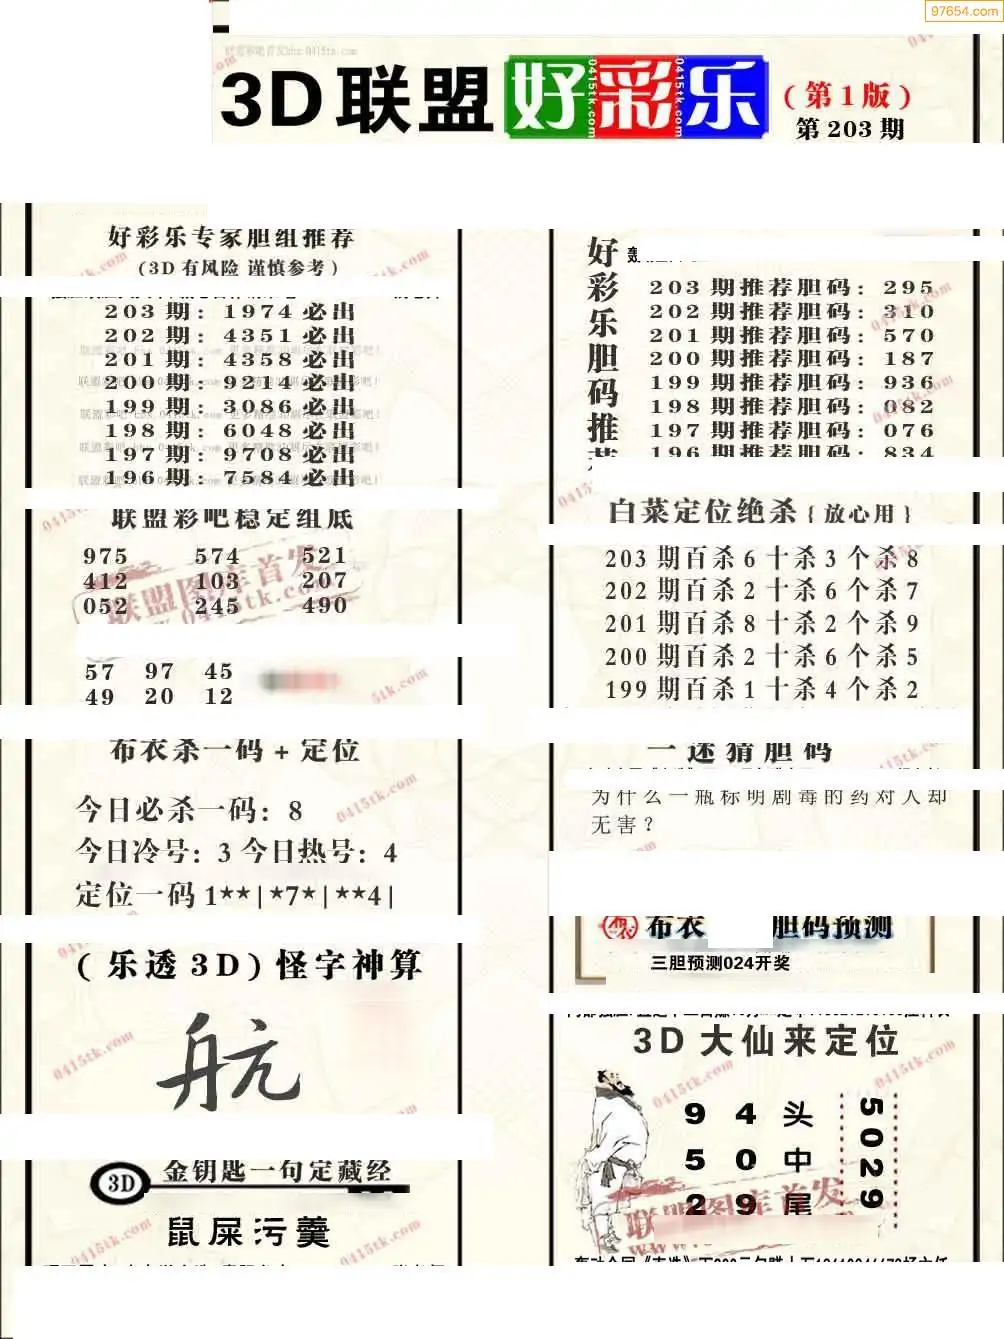 97654.com
3D联盟 好彩乐 (第1版)
第203期
好彩乐专家胆组推荐
(3D有风险 谨慎参考)
203期: 1974必出
202期: 4351必出
201期: 4358必出
200期: 9214必出
199期: 3086必出
198期: 6048必出
197期: 9708必出
196期: 7584必出
联盟彩吧稳定组底
975 574 521
412 103 207
052 245 490
联盟图库首发
0415tk.com
57 97 45
49 20 12
布衣杀一码+定位
今日必杀一码: 8
今日冷号: 3 今日热号: 4
定位一码1**|*7*|**4|
(乐透3D)怪字神算
航
3D 金钥匙一句定藏经
鼠屎污羹
好彩乐胆码推
203期推荐胆码: 295
202期推荐胆码: 310
201期推荐胆码: 570
200期推荐胆码: 187
199期推荐胆码: 936
198期推荐胆码: 082
197期推荐胆码: 076
196期推荐胆码: 834
白菜定位绝杀{放心用}
203期百杀6十杀3个杀8
202期百杀2十杀6个杀7
201期百杀8十杀2个杀9
200期百杀2十杀6个杀5
199期百杀1十杀4个杀2
一迷猜胆码
为什么一瓶标明剧毒的药对人却
无害?
布衣 胆码预测
三胆预测024开奖
3D大仙来定位
9 4 头
5 0 中
2 9 尾
5029
联盟图库首发